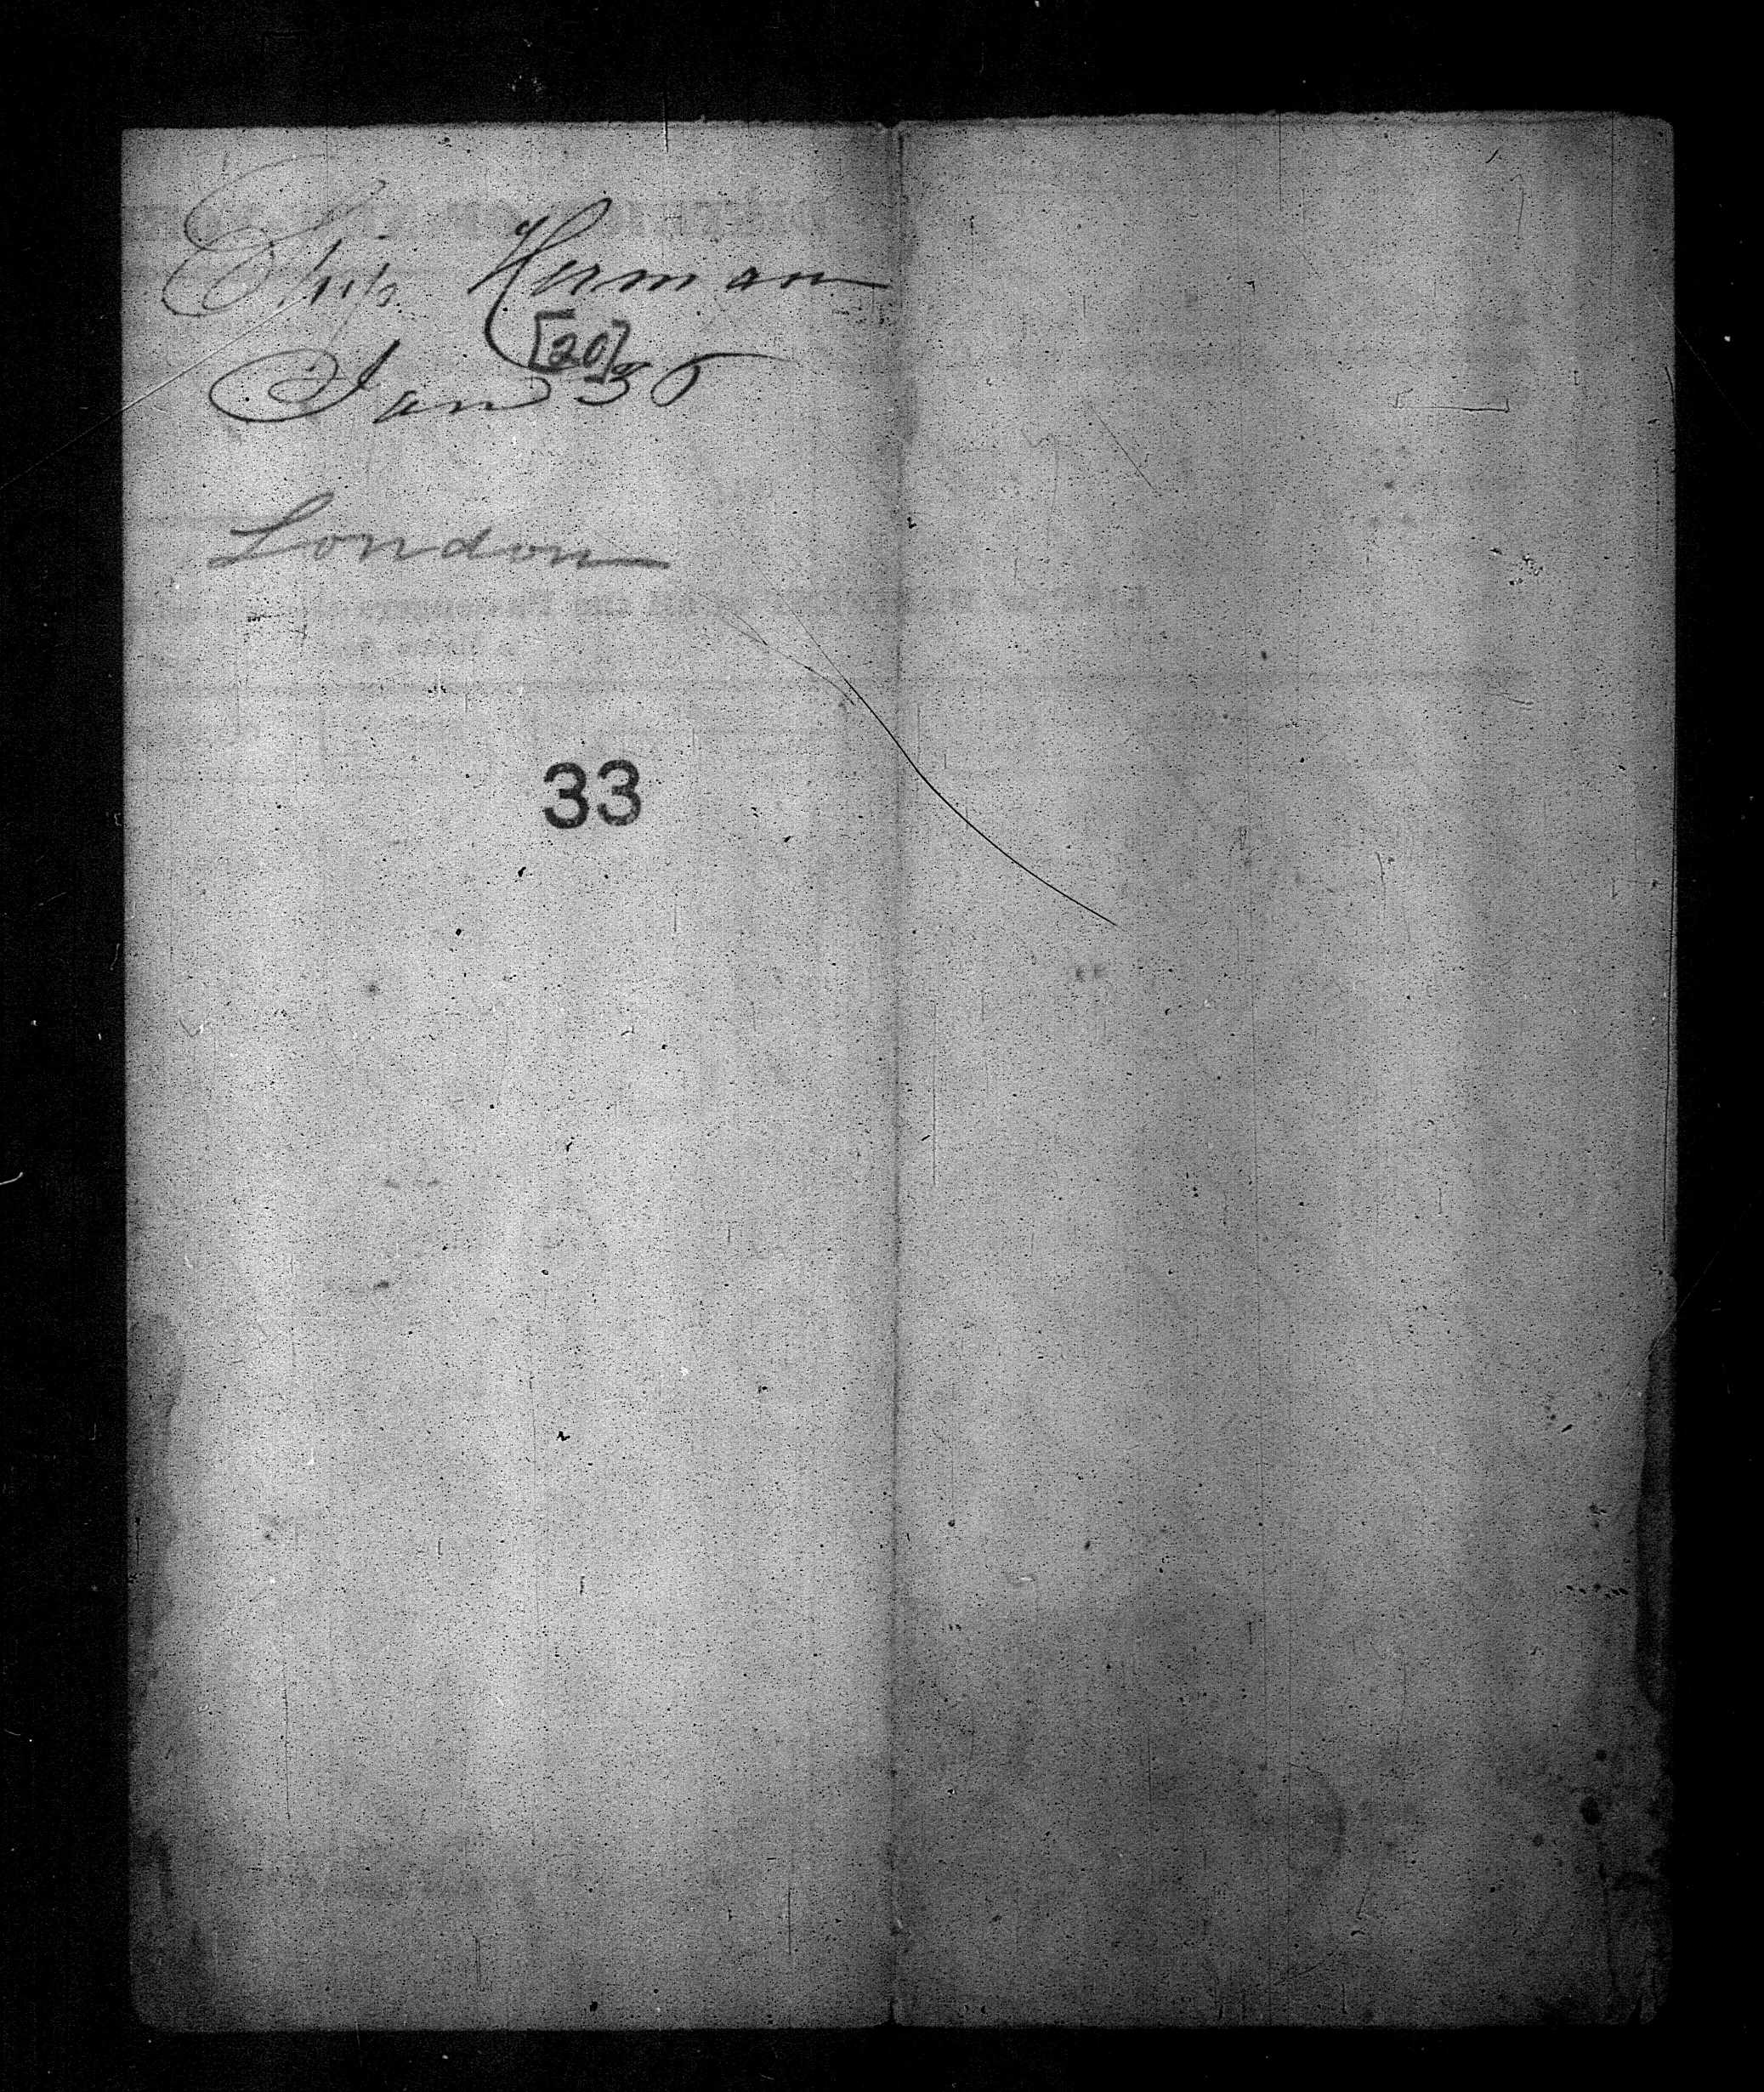 Ship Herman
[20]
Jan 30
London
33